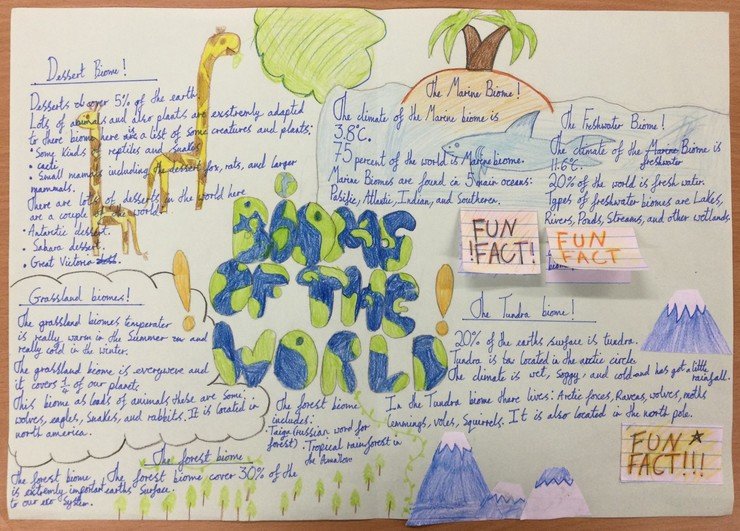 Dessert Biome!
Desserts ol cover 5% of the earth.
Lots of animals and also plants are exstremly adapted
to there biome here is a list of some creatures and plants:
• Some kinds of reptiles and snakes
• cacti
• Small mamals including the dessert fox, rats, and larger
mammals.
There are lots of desserts in the world here
are a couple of the world:
• Antarctic dessert.
• Sahara dessert.
• Great Victoria
Grassland biomes!
The grassland biomes temperater
is really warm in the Summer and
really cold in the winter.
The grassland biome is everywere and
it covers of our planet.
This biome as loads of animals these are some:
wolves, eagles, snakes, and rabbits. It is located in
north america.
BIOMES
OF THE
WORLD!
The Marine Biome!
The climate of the Marine biome is
3.8°C.
75 percent of the world is Marine biome.
Marine Biomes are found in 5 main oceans:
Pasific, Atlantic, Indian, and Southern.
The Freshwater Biome!
The climate of the Marine Biome is
freshwater
11.6°C.
20% of the world is fresh water.
Types of freshwater biomes are Lakes,
Rivers, Ponds, Streams, and other wetlands.
FUN
!FACT!
FUN
FACT
biome
The Tundra biome!
20% of the earths surface is tundra.
Tundra is located in the arctic circle.
The climate is wet, soggy, and cold and has got a little
rainfall.
In the Tundra biome there lives: Arctic foxes, Ravens, wolves, moths
Lemmings, voles, Squirrels. It is also located in the north pole.
FUN
FACT!!!
The forest biome
includes:
Taiga (russian word for
forest) • Tropical rainforest in
the Amazon
The forest biome
The forest biome
is extremly important
to our eco System.
The forest biome cover 30% of the
earths Surface.